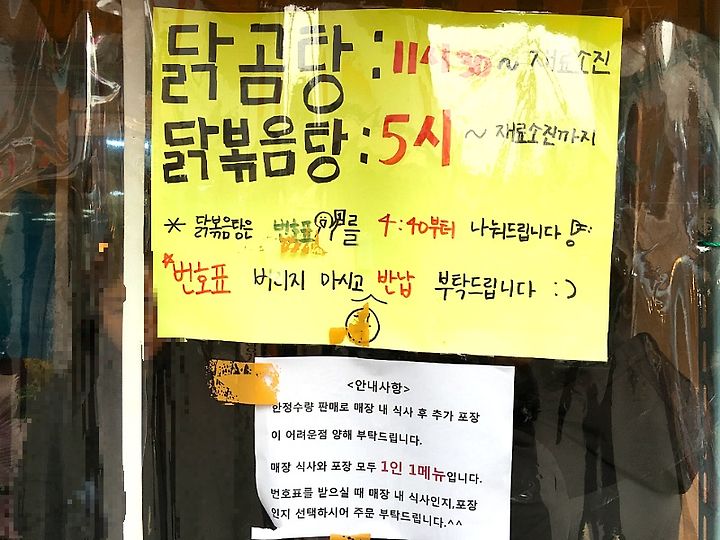 닭곰탕 : 11시30 ~ 재료소진
닭볶음탕 : 5시 ~ 재료소진까지
* 닭볶음탕은 번호표를 4:40부터 나눠드립니다
*번호표 버리지 마시고 반납 부탁드립니다 :)
<안내사항>
한정수량 판매로 매장 내 식사 후 추가 포장
이 어려운점 양해 부탁드립니다.
매장 식사와 포장 모두 1인 1메뉴입니다.
번호표를 받으실 때 매장 내 식사인지,포장
인지 선택하시어 주문 부탁드립니다.^^